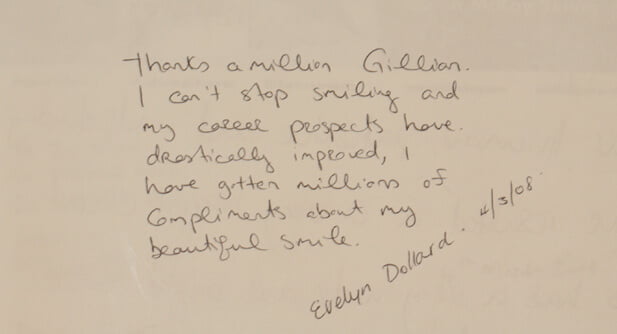 Thanks a million Gillian.
I can't stop smiling and
my career prospects have.
drastically improved, I
have gotten millions of
Compliments about my
beautiful smile.
Evelyn Dollard. 4/3/08.